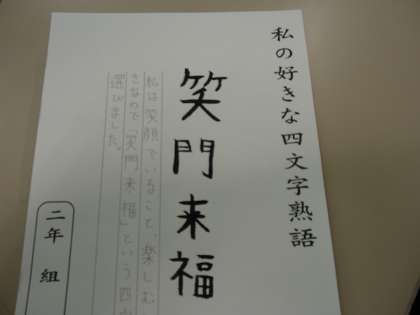 私の好きな四文字熟語
笑門来福
私は笑顔でいること、楽しむ
きなので「笑門来福」という四
選びました。
二年 組